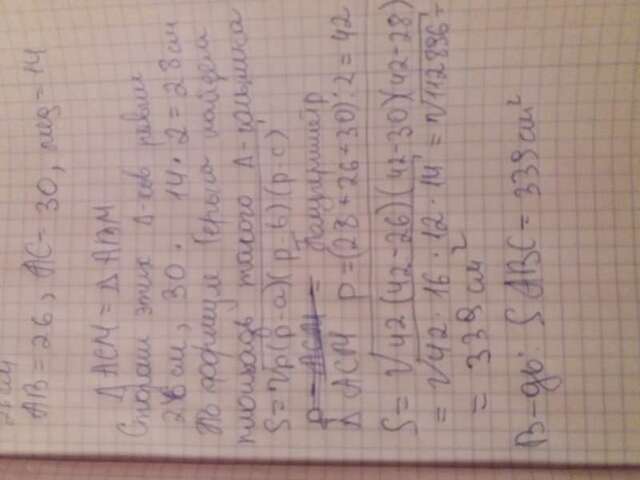 AB = 26, AC = 30, мед = 14
Δ ACM = Δ ABM
Сторони этих Δ-ков равны
26 см, 30 . 14 · 2 = 28 см
По формуле Герона найдем
площадь такого Δ-
S = √p(p-a)(p-b)(p-c)
Полупериметр
Δ ACM p = (28+26+30):2 = 42
S = √42(42-26)(42-30)(42-28)
= √42·16·12·14 = √112896 =
= 339 см²
В-дь: S ABC = 339 см²